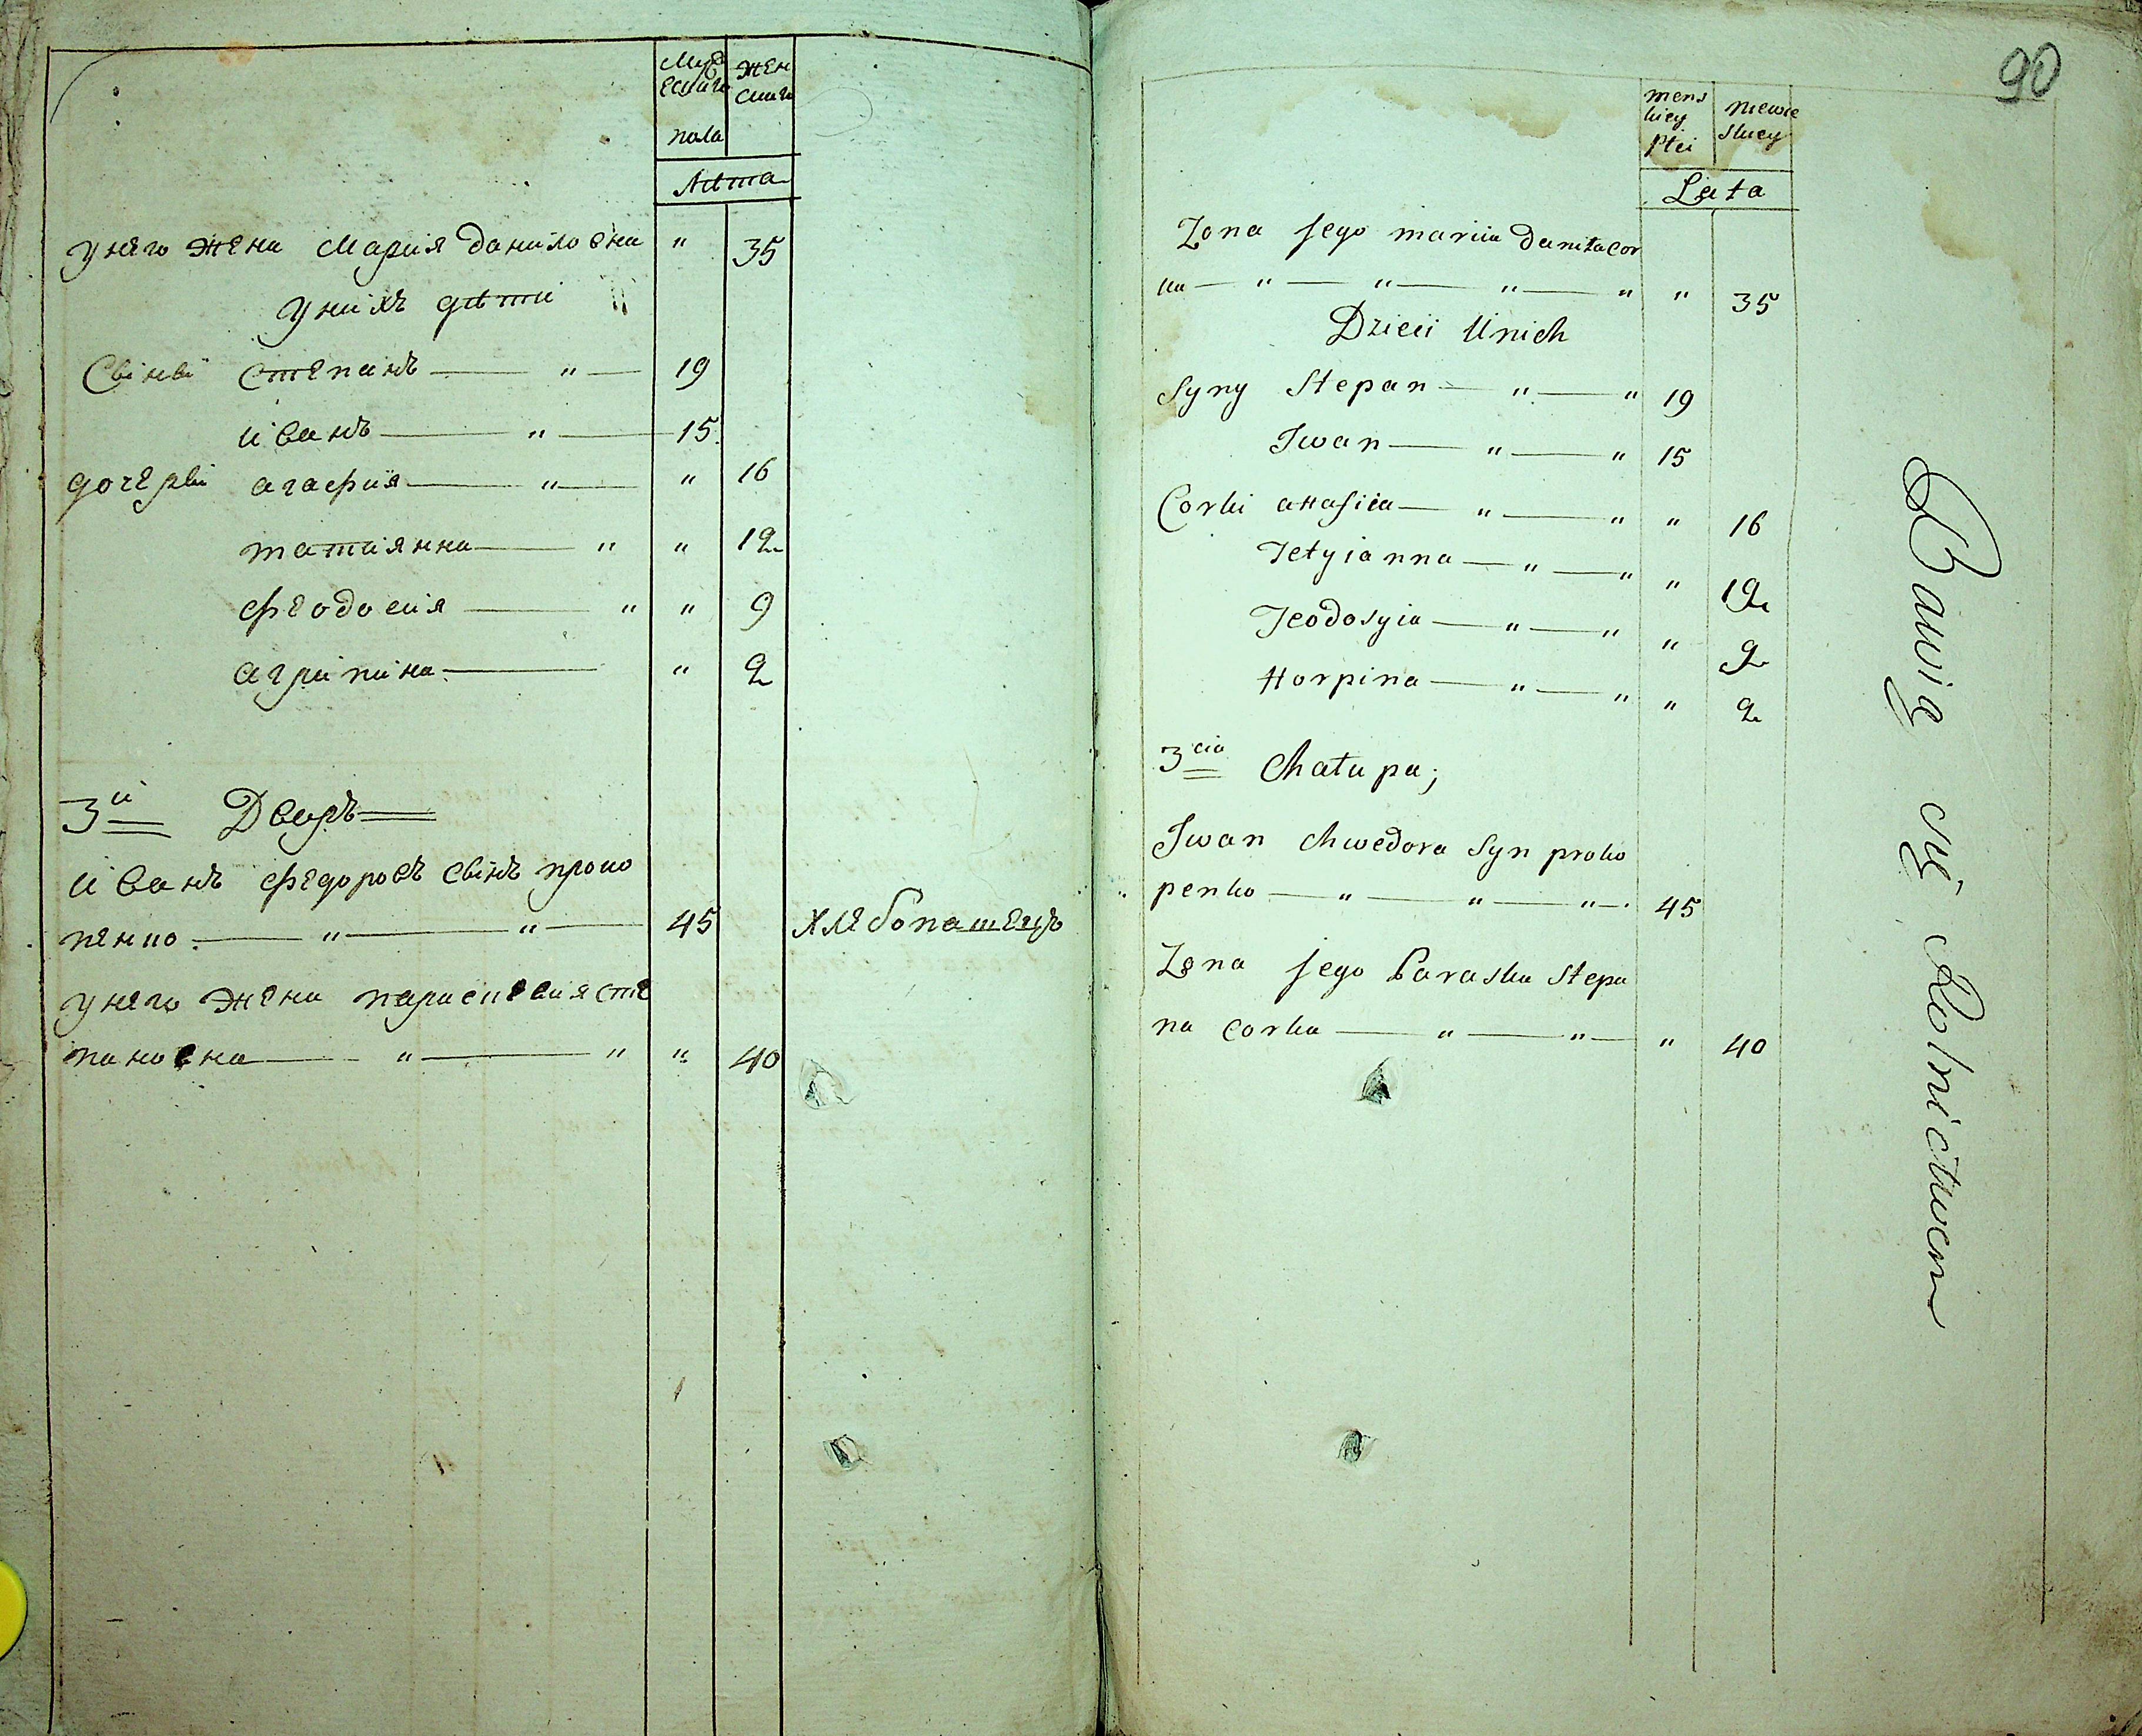 Муж ескаго пола
Жен скаго
Лѣта
у него жена Мария данилоєна " 35
у нихъ дѣти "
Сыны Степанъ — " — 19
иванъ — " — 15.
дочеры агафия — " — " 16
татиянна — " " 12
феодосия — " " 9
агрипина — " 2
3й Дворъ
иванъ федоровъ сынъ проко
пенко — " — " — 45 хлебопашецъ
у него жена параскевия сте
пановна — " — " " 40
90
mens kiey Płci
niewie skiey
Lata
Zona jego mariia Daniła cor
ka — " — " — " — " " 35
Dzieci U nich
Syny Stepan — " — " 19
Iwan — " — " 15
Corki — " — " " 16
Tetyianna — " — " " 12
Teodosyia — " — " " 9
Horpina — " — " " 2
3cia Chałupa;
Iwan Chwedora Syn proko
penko — " — " — " — 45
Zona jego Paraska Stepa
na corka — " — " — " 40
Bawią się Rolnictwem